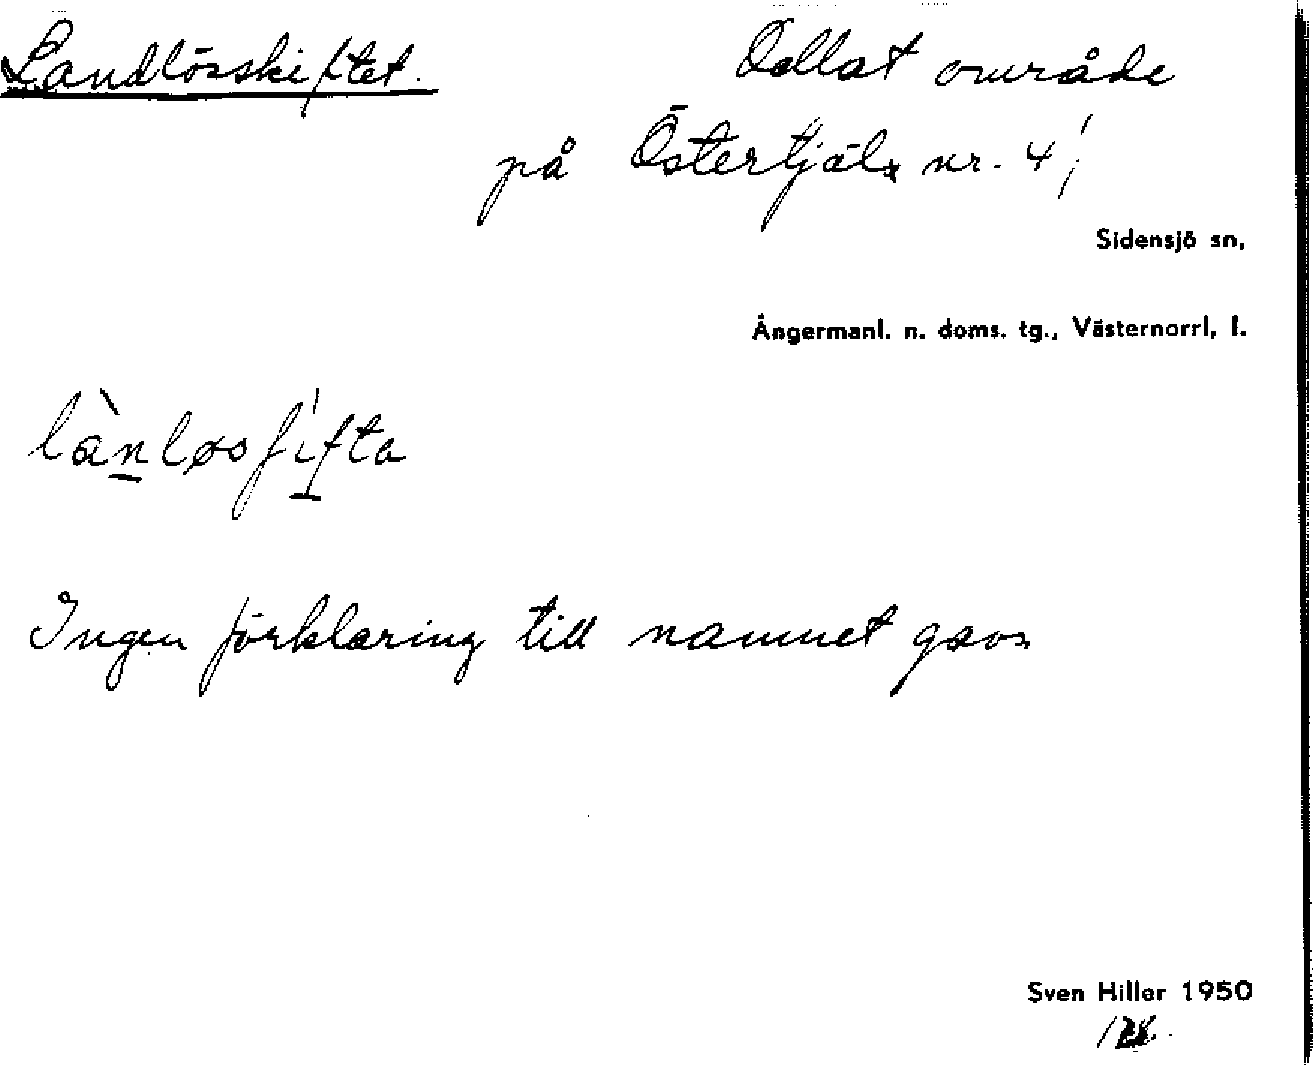 Landlösskiftet. Odlat område
på Östertjäl nr. 4¹
Sidensjö sn,
Ångermanl. n. doms. tg., Västernorrl, l.
lànløsʃifta
Ingen förklaring till namnet gavs
Sven Hiller 1950